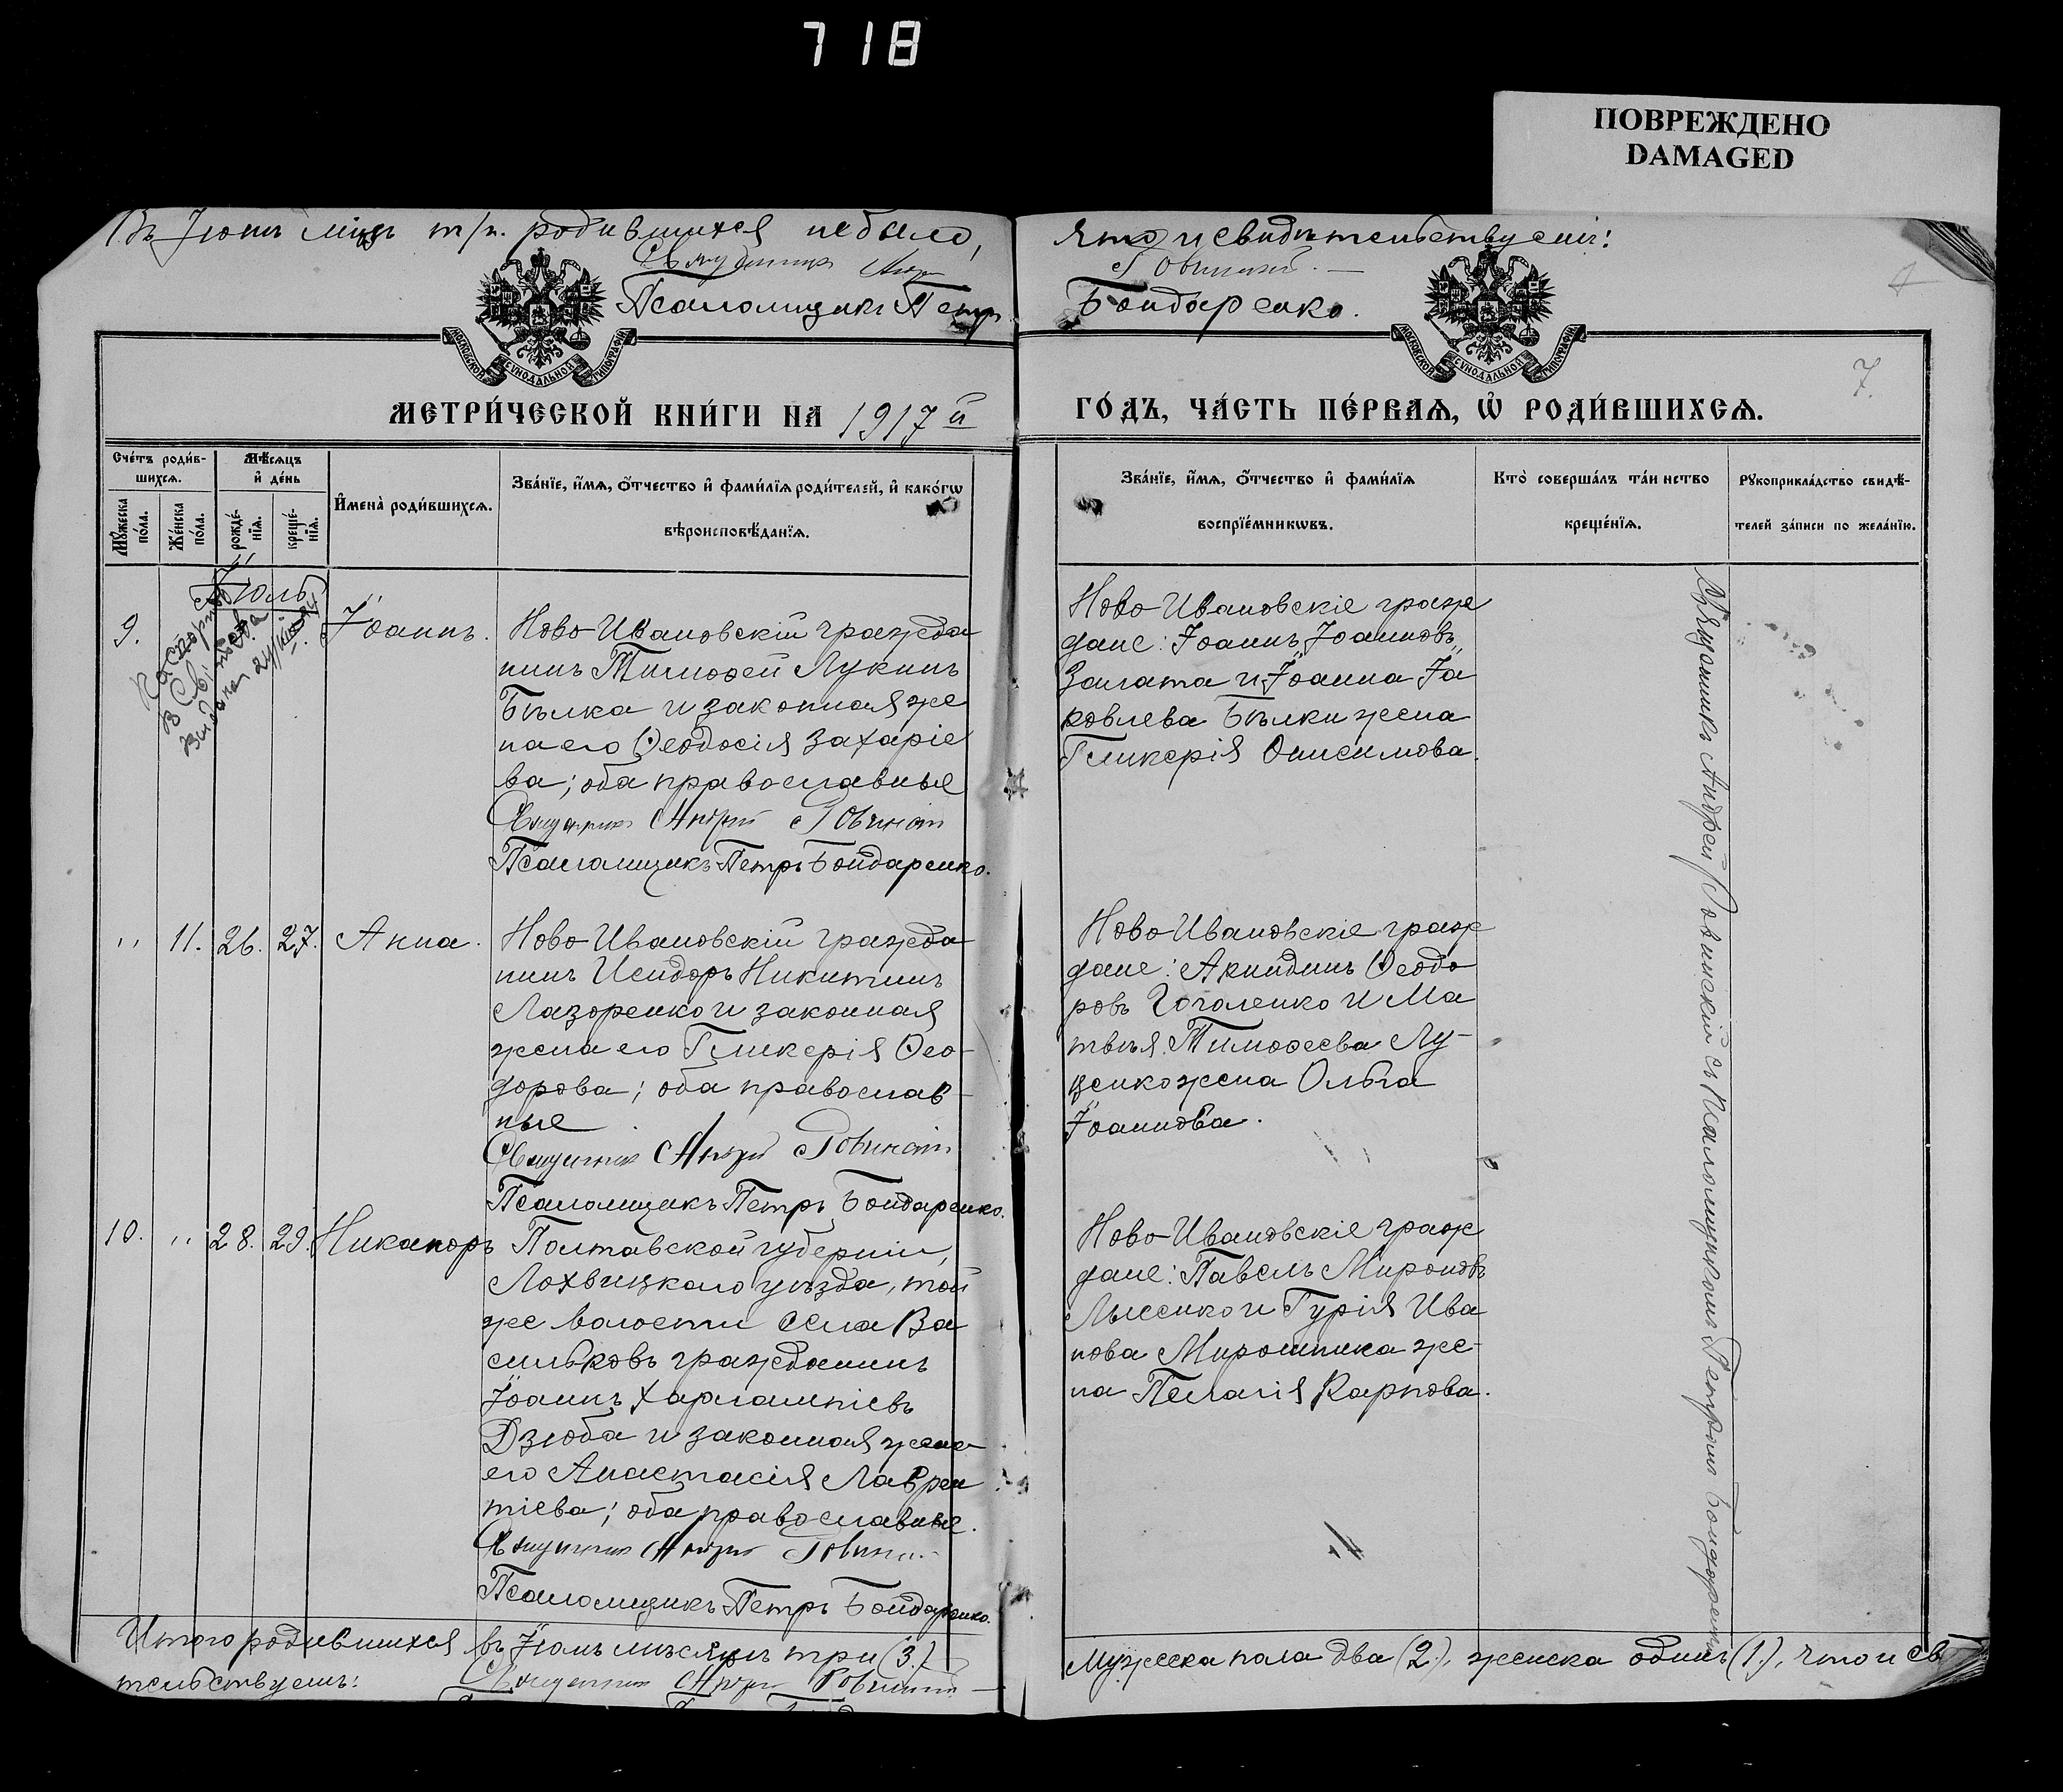 718
ПОВРЕЖДЕНО
DAMAGED
Въ Іюнѣ мцѣ т/г. родившихся небыло,
что и свидѣтельствуемъ:
Священникъ Андр.
Ровинскій.
Псаломщикъ Петръ
Бондаренко.
МОСКОВСКОЙ СѴНОДАЛЬНОЙ ТИПОГРАФІИ
МОСКОВСКОЙ СѴНОДАЛЬНОЙ ТИПОГРАФІИ
7.
МЕТРИ́ЧЕСКОЙ КНИ́ГИ НА 1917й
ГО́ДЪ, ЧА́СТЬ ПЕ́РВАѦ, Ѡ҆ РОДИ́ВШИХСѦ.
Сче́тъ роди́в-
шихсѧ.
Мѣ́сѧцъ
и҆ де́нь
Мꙋ́жеска
по́ла.
Же́нска
по́ла.
рожде́-
нїѧ.
креще́-
нїѧ.
И҆мена̀ роди́вшихсѧ.
Зва́нїе, и҆́мѧ, ѻ҆́тчество и҆ фами́лїѧ роди́телей, и҆ како́гѡ
вѣроисповѣ́данїѧ.
Зва́нїе, и҆́мѧ, ѻ҆́тчество и҆ фами́лїѧ
воспрїе́мникѡвъ.
Кто̀ соверша́лъ та́инство
креще́нїѧ.
Рꙋкоприкла́дство свидѣ́-
телей за́писи по жела́нїю.
Іюль
9.
Іоаннъ.
Ново-Ивановскій гражда
нинъ Тимоѳей Лукинъ
Бѣлка и законная же
на его Ѳеодосія Захаріе
ва; оба православные
Священникъ Андрей Ровинскій
Псаломщикъ Петръ Бондаренко.
Ново-Ивановскіе граж
дане: Іоаннъ Іоанновъ
Залата и Іоанна Іа
ковлева Бѣлки жена
Гликерія Онисимова.
" 11. 26. 27. Анна.
Ново-Ивановскій гражда
нинъ Исидоръ Никитинъ
Лазоренко и законная
жена его Гликерія Ѳео-
дорова; оба православ-
ные
Священникъ Андрей Ровинскій
Псаломщикъ Петръ Бондаренко.
Ново-Ивановскіе граж
дане: Акиндинъ Ѳеодо
ровъ Гоголенко и Ма
твѣя Тимоѳеева Лу-
ценко жена Ольга
Іоаннова.
10. " 28. 29. Никаноръ
Полтавской губерніи,
Лохвицкаго уѣзда, той
же волости села Ва
сильковъ гражданинъ
Іоаннъ Харлампіевъ
Дзюба и законная жена
его Анастасія Лаврен
тіева; оба православные.
Священникъ Андрей Ровинскій
Псаломщикъ Петръ Бондаренко.
Ново-Ивановскіе граж
дане: Павелъ Мироновъ
Лысенко и Гурія Ива
нова Мирошника же-
на Пелагія Карпова.
Священникъ Андрей Ровинскій съ Псаломщикомъ Петромъ Бондаренко
Итого родившихся въ Іюлѣ мѣсяцѣ три (3.)
мужеска пола два (2.), женска одинъ (1.), что и св
тельствуемъ:
Священникъ Андрей Ровинскій